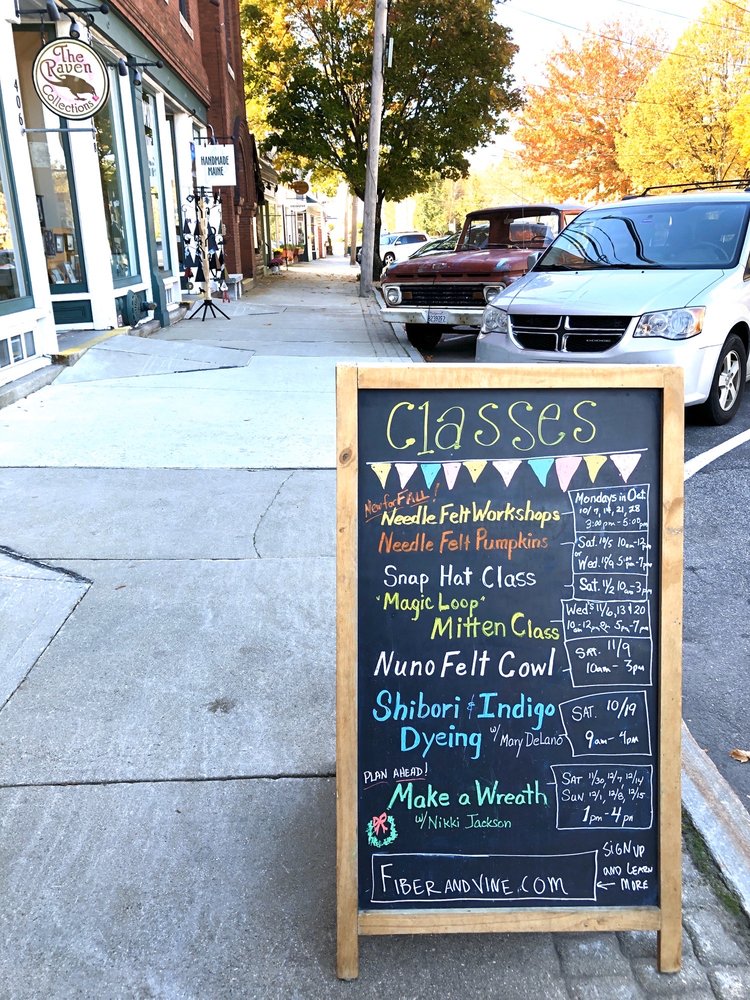 The
Raven
Collections
406
HANDMADE
MAINE
Classes
New for FALL!
Needle Felt Workshops
Mondays in Oct
10/7, 14, 21, 28
3:00pm - 5:00pm
Needle Felt Pumpkins
Sat. 10/5 10am-12pm
or
Wed. 10/9 5:00pm-7pm
Snap Hat Class
Sat. 11/2 10am-3pm
"Magic Loop"
Mitten Class
Wed's 11/6, 13 & 20
10am-12pm or 5pm-7pm
Nuno Felt Cowl
Sat. 11/9
10am - 3pm
Shibori & Indigo
Dyeing w/ Mary DeLano
SAT. 10/19
9am - 4pm
PLAN AHEAD!
Make a Wreath
w/ Nikki Jackson
SAT 11/30, 12/7, 12/14
SUN 12/1, 12/8, 12/15
1pm - 4pm
FIBERANDVINE.COM
SIGN UP
AND LEARN
← MORE